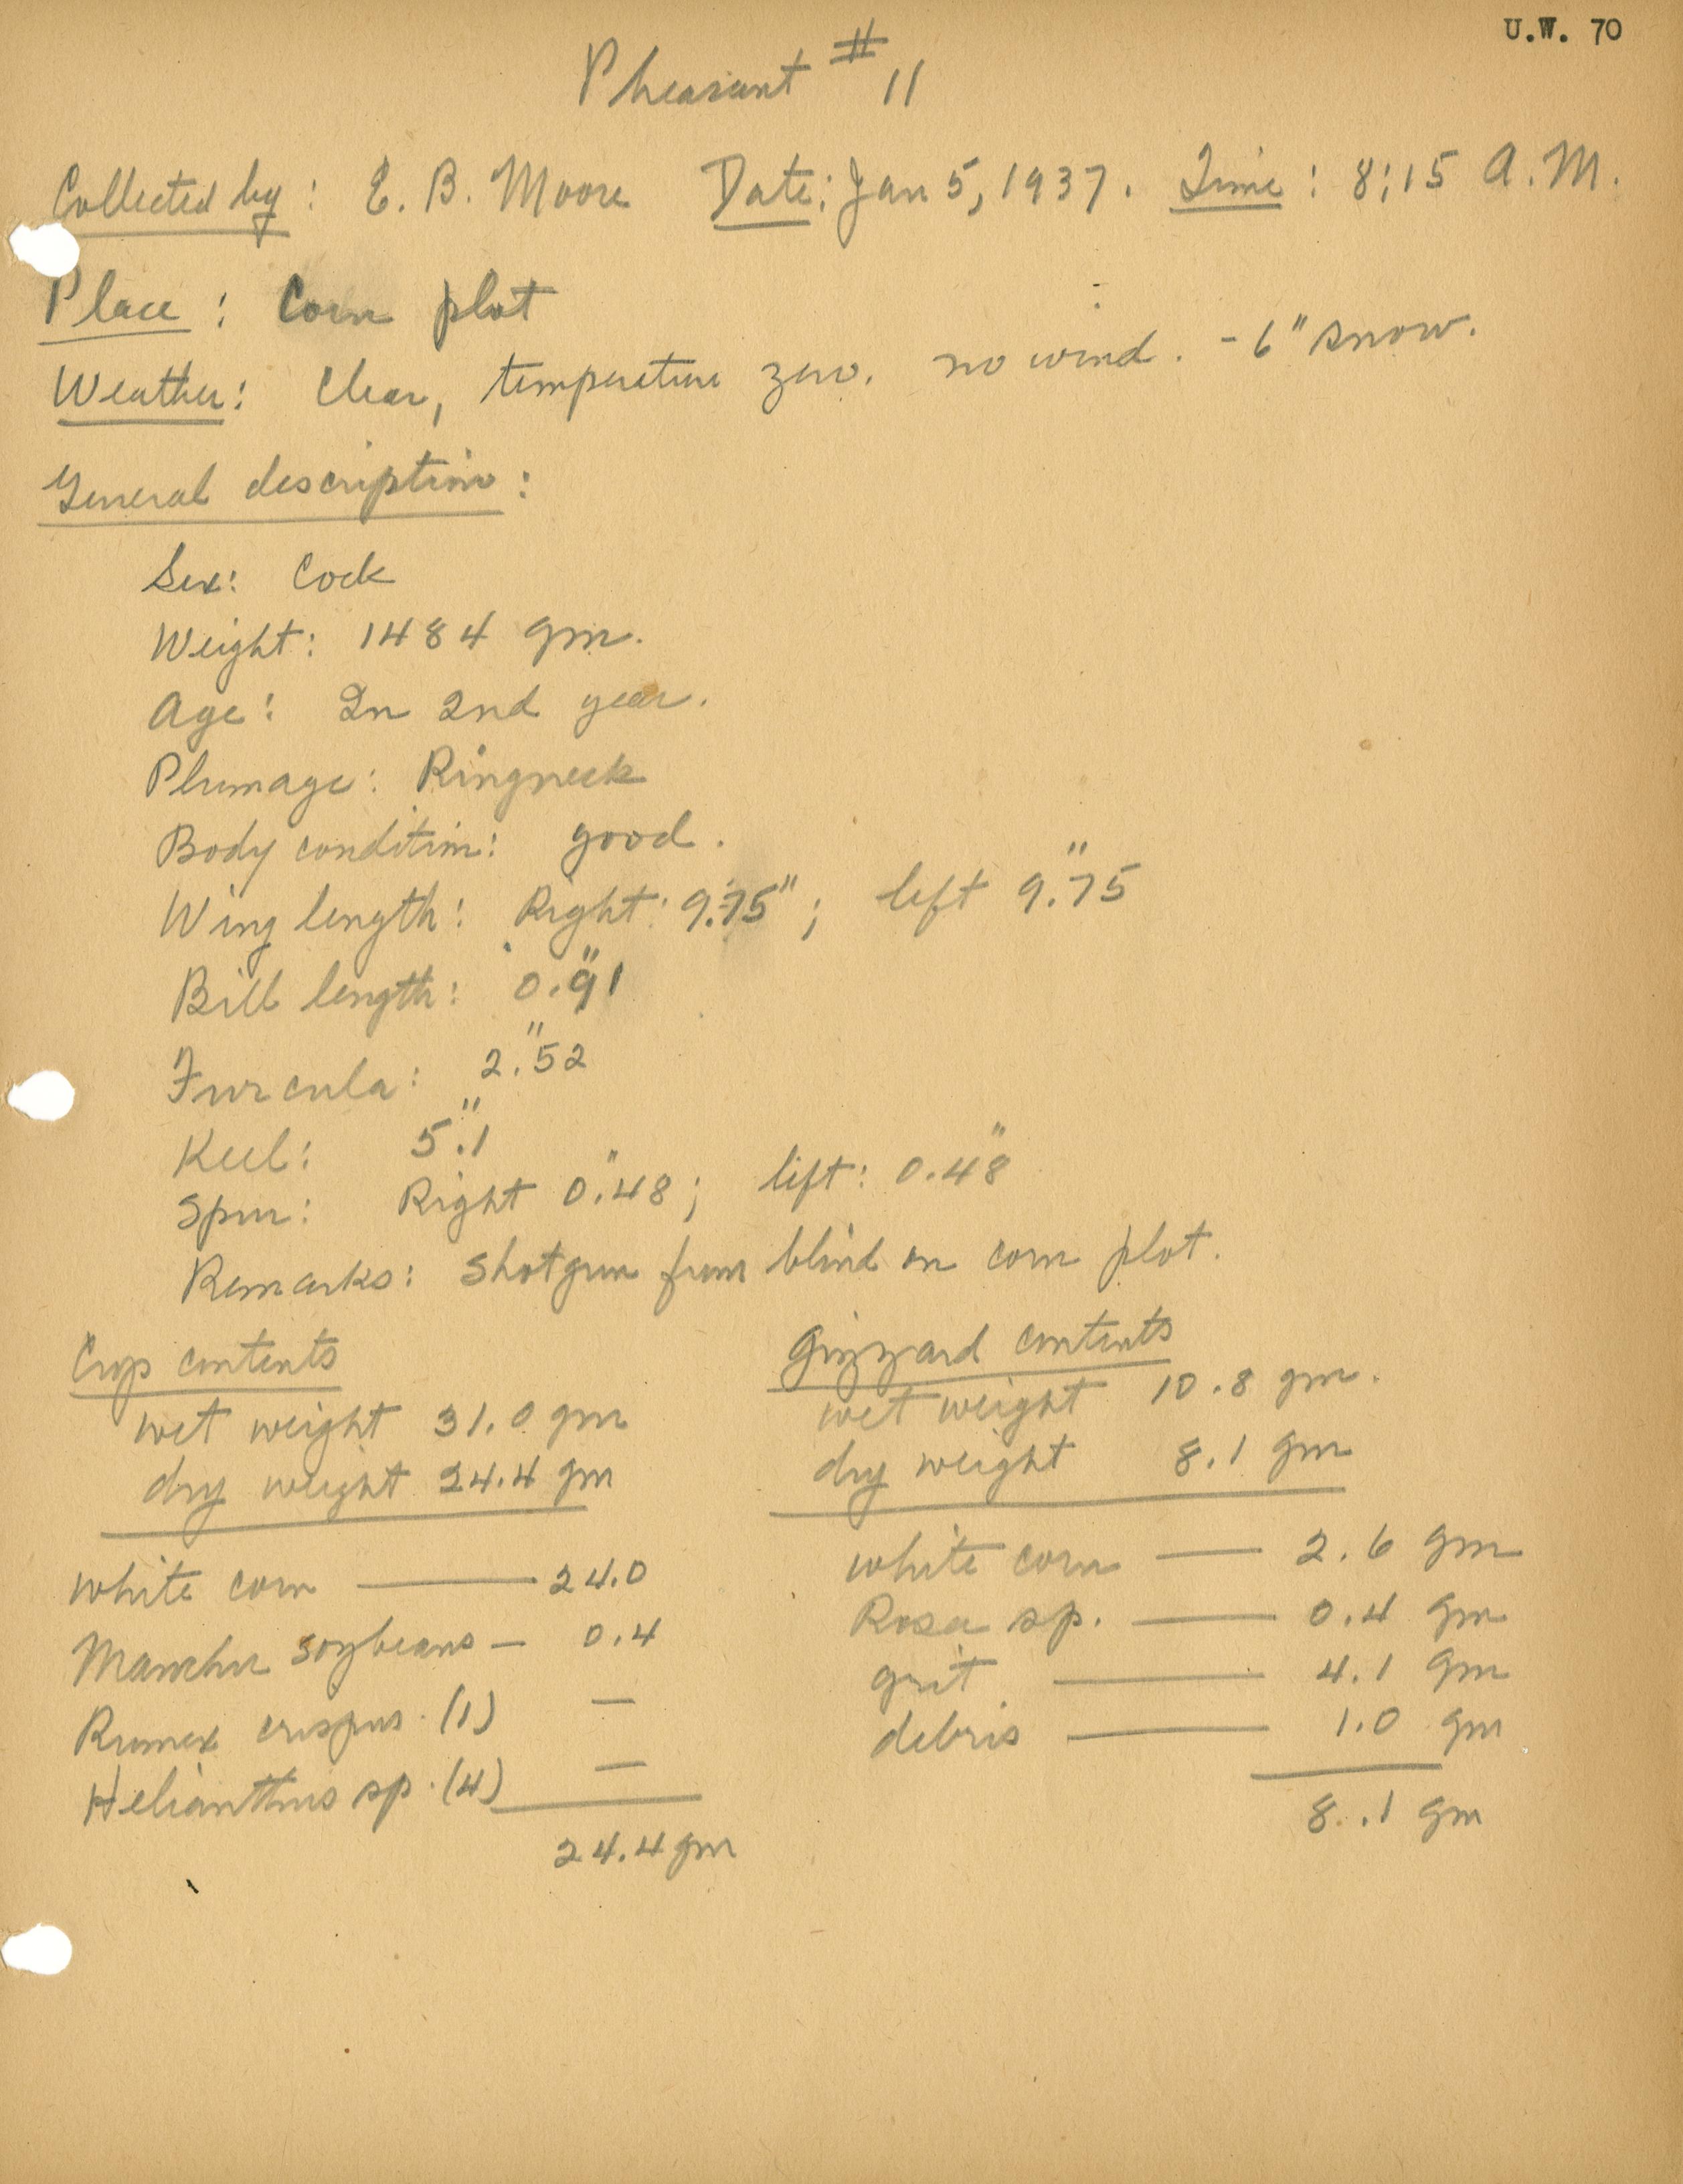 U.W. 70
Pheasant # 11
Collected by: E. B. Moore Date: Jan 5, 1937. Time: 8:15 A.M.
Place: Corn plot
Weather: Clear, temperature zero. no wind. - 6" snow.
General description:
Sex: Cock
Weight: 1484 gm.
Age: In 2nd year.
Plumage: Ringneck
Body condition: good.
Wing length: Right: 9.75"; left 9."75
Bill length: 0."91
Furcula: 2."52
Keel: 5."1
Spur: Right 0."48; left: 0."48
Remarks: Shotgun from blind on corn plot.
Crop contents
wet weight 31.0 gm
dry weight 24.4 gm
white corn — 24.0
Manchu soybeans — 0.4
Rumex crispus (1) —
Helianthus sp. (4) —
24.4 gm
Gizzard contents
wet weight 10.8 gm.
dry weight 8.1 gm
white corn — 2.6 gm
Rosa sp. — 0.4 gm
grit — 4.1 gm
debris — 1.0 gm
8.1 gm